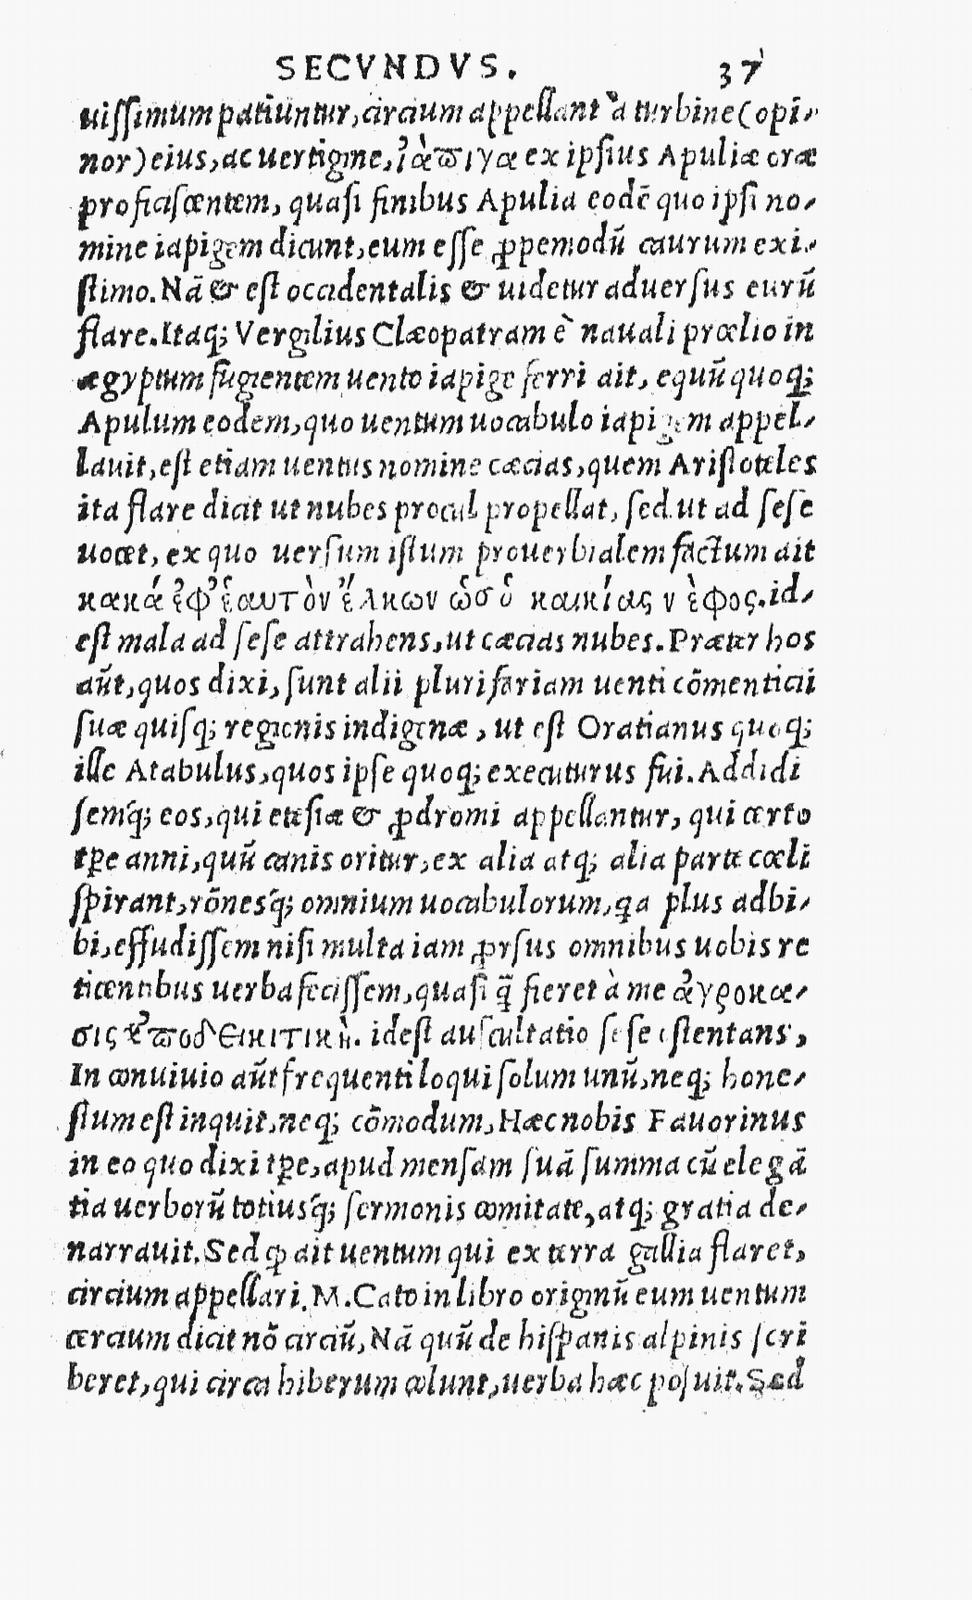 SECVNDVS. 37
uiſſimum patiuntur, circium appellant à turbine (opi-
nor) eius, ac uertigine, ἰάπιγα ex ipſius Apuliæ oræ
proficiſcentem, quaſi finibus Apulia eodē quo ipſi no-
mine iapigem dicunt, eum eſſe ꝓpemodū caurum exi-
ſtimo. Nā & eſt occidentalis & uidetur aduerſus eurū
flare. Itaq; Vergilius Clæopatram è nauali prœlio in
ægyptum fugientem uento iapige ferri ait, equū quoq;
Apulum eodem, quo uentum uocabulo iapigem appel-
lauit, eſt etiam uentus nomine cæcias, quem Ariſtoteles
ita flare dicit ut nubes procul propellat, ſed ut ad ſeſe
uocet, ex quo uerſum iſtum prouerbialem factum ait
κακά ἐφ᾽ ἑαυτὸν ἕλκων ὡσ ὁ καικίας νὲφος. id-
eſt mala ad ſeſe attrahens, ut cæcias nubes. Præter hos
aūt, quos dixi, ſunt alii plurifariam uenti cōmenticii
ſuæ quiſq; regionis indigenæ, ut eſt Oratianus quoq;
ille Atabulus, quos ipſe quoq; executurus fui. Addidi
ſemq́; eos, qui eteſiæ & ꝓdromi appellantur, qui certo
tꝑe anni, quū canis oritur, ex alia atq; alia parte cœli
ſpirant, rōnesq́; omnium uocabulorum, q̃a plus adbi-
bi, effudiſſem niſi multa iam ꝓrſus omnibus uobis re
ticentibus uerba feciſſem, quaſi q̃ fieret à me ἀγροκα-
σις ἐποδΕΙΚΙΤΙΚὴ. ideſt auſcultatio ſeſe oſtentans,
In conuiuio aūt frequenti loqui ſolum unū, neq; hone-
ſtum eſt inquit, neq; cōmodum, Hæc nobis Fauorinus
in eo quo dixi tꝑe, apud menſam ſuā ſumma cū elegā
tia uerborū totiusq́; ſermonis comitate, atq; gratia de-
narrauit. Sed ꝙ ait uentum qui ex terra gallia flaret,
circium appellari. M. Cato in libro originū eum uentum
cercium dicit nō circiū, Nā quū de hiſpanis alpinis ſcri
beret, qui circa hiberum colunt, uerba hæc poſuit. Sed